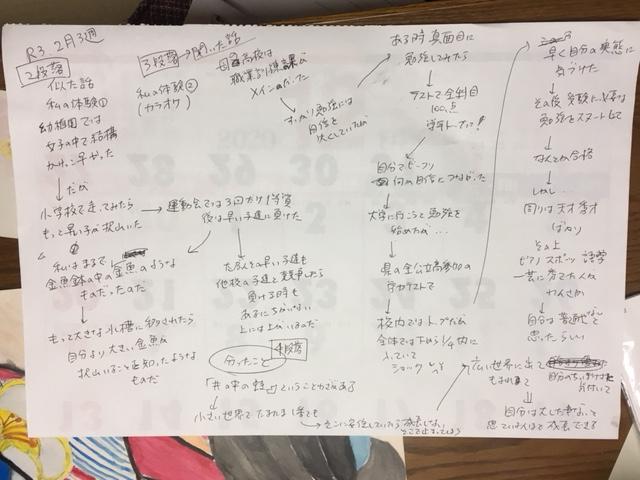 R3. 2月3週
2段落
似た話
私の体験①
幼稚園では
女子の中で結構
かけっこ早かった
↓だが
小学校で走ってみたら
もっと早い子が沢山いた
→ 運動会では3回だけ1等賞
後は早い子達に負けた
私はまるで
金魚鉢の中の金魚のような
ものだったのだ
↓
もって大きな水槽に移されたら
自分より大きい金魚が
沢山いることを知ったような
ものだ
だがその早い子達も
他校の子達と競争したら
負ける時も
あるにちがいない
上には上がいるのだ
3段落→聞いた話
私の体験②
(カラオケ)
高校は
職業訓練課が
メインだった
↓
すっかり勉強には
自信を
欠くしていたが
ある時真面目に
勉強してみたら
↓
テストで全科目
100点
学年トップに!
↓
自分でビックリ
何の自信につながった
↓
大学に行こうと勉強を
始めたが…
↓
県の全公立高参加の
学力テストで
↓
校内ではトップだが
全体では下から1/4内に
入っていて
ショック
→ 早く自分の実態に
気づけた
↓
その後受験に必要な
勉強をスタートして
↓
なんとか合格
↓
しかし…
周りは天才秀才
ばかり
その上
ピアノ スポーツ 語学
一芸に秀でた人が
わんさか
↓
自分は普通だなんて
思ったらしい
4段落
分かったこと
「井の中の蛙」ということわざがある
↓
小さい世界でたまたま1番でも
→ そこに安住していたら成長しない
そこで止まってしまう
広い世界に出て
もまれて
自分のちっぽけさに
気付いて
↓
自分は大した事ないと
思っていればこそ成長できる